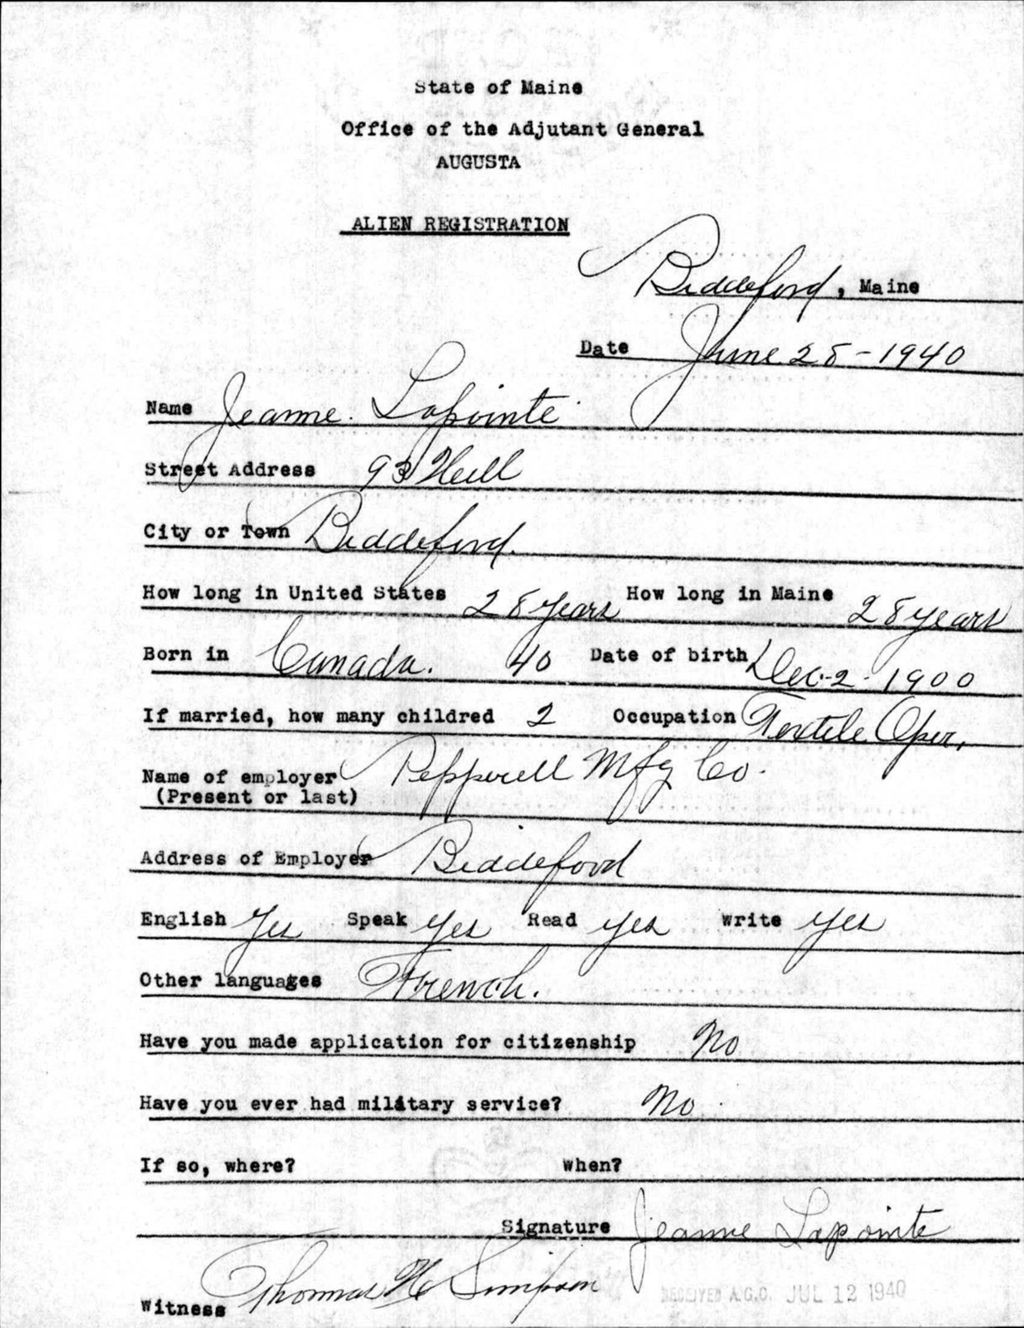 State of Maine
Office of the Adjutant General
AUGUSTA
ALIEN REGISTRATION
Biddeford, Maine
Date June 28-1940
Name Jeanne Lapointe
Street Address 93 Hill
City or Town Biddeford.
How long in United States 28 years How long in Maine 28 years
Born in Canada. 40 Date of birth Dec-2-1900
If married, how many childred 2 Occupation Textile Oper.
Name of employer Pepperell Mfg Co.
(Present or last)
Address of Employer Biddeford
English Yes Speak Yes Read yes Write yes
Other languages French.
Have you made application for citizenship No
Have you ever had military service? No
If so, where? When?
Signature Jeanne Lapointe
Witness Thomas H Simpson
RECEIVED A.G.O. JUL 12 1940